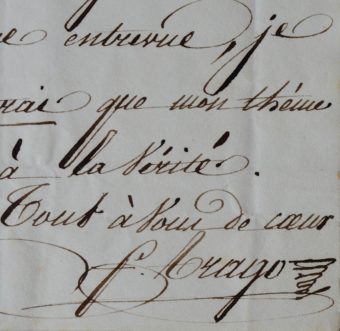 entrevue, je
vrai que mon thême
à la Vérité.
Tout à Vous de cœur
f. Arago